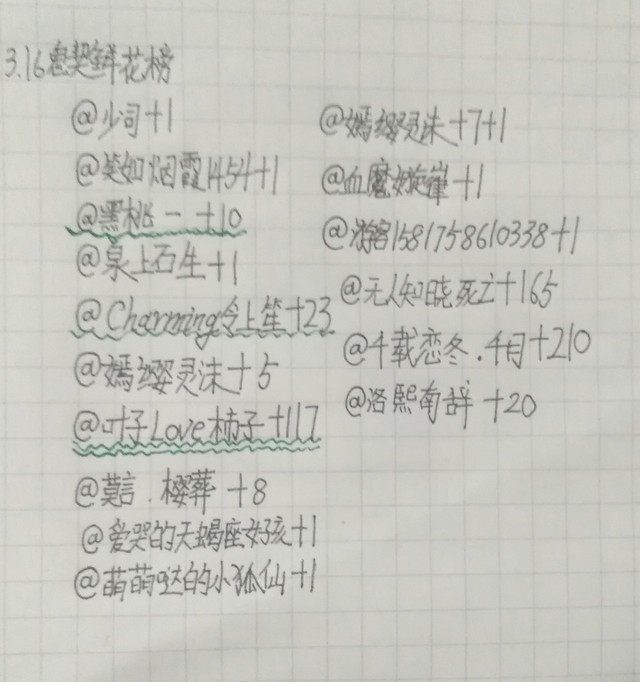 3.16鬼契鲜花榜
@少司+1
@笑如烟霞1454+1
@黑桃一 +10
@泉上石生+1
@Charming令上笙+23
@嫣缨灵沫+5
@叶子Love柿子+117
@莫言.樱葬 +8
@爱哭的天蝎座女孩+1
@萌萌哒的小狐仙+1
@嫣缨灵沫+7+1
@血魔女漩崔+1
@游客1581758610338+1
@无人知晓死亡+165
@千载恋冬.千月+210
@洛熙南辞 +20